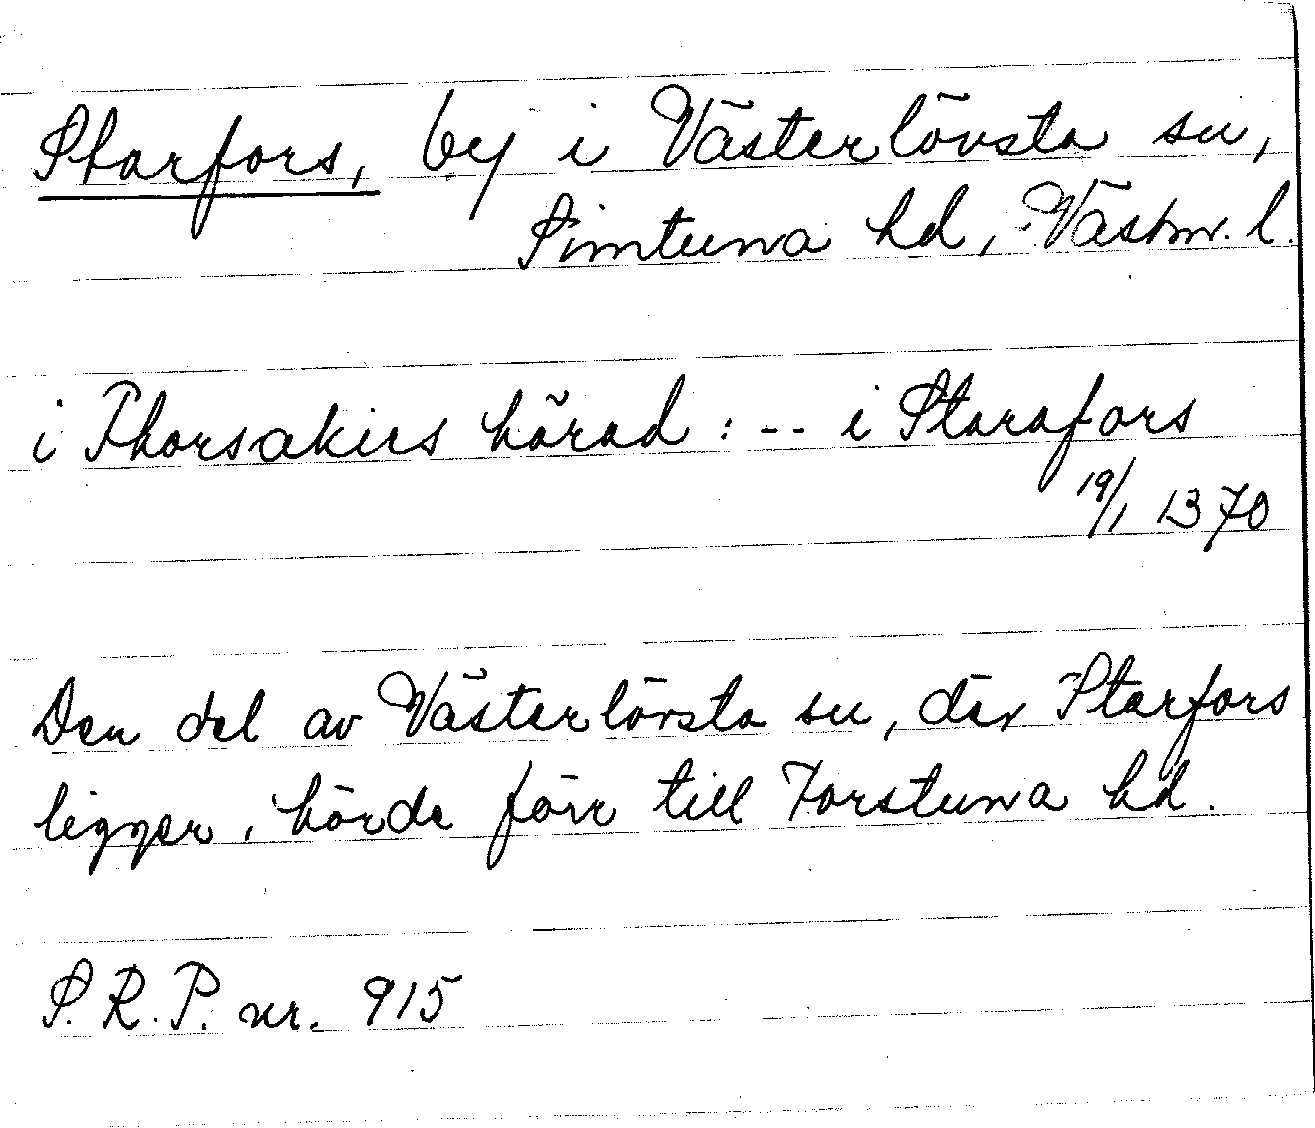 Starfors, by i Västerlövsta sn,
Simtuna hd, Västm. l.
i Thorsakirs hörad : -- i Starafors
19/1 1370
Den del av Västerlövsta sn, där Starfors
ligger, hörde förr till Torstuna hd.
S.R.P. nr. 915